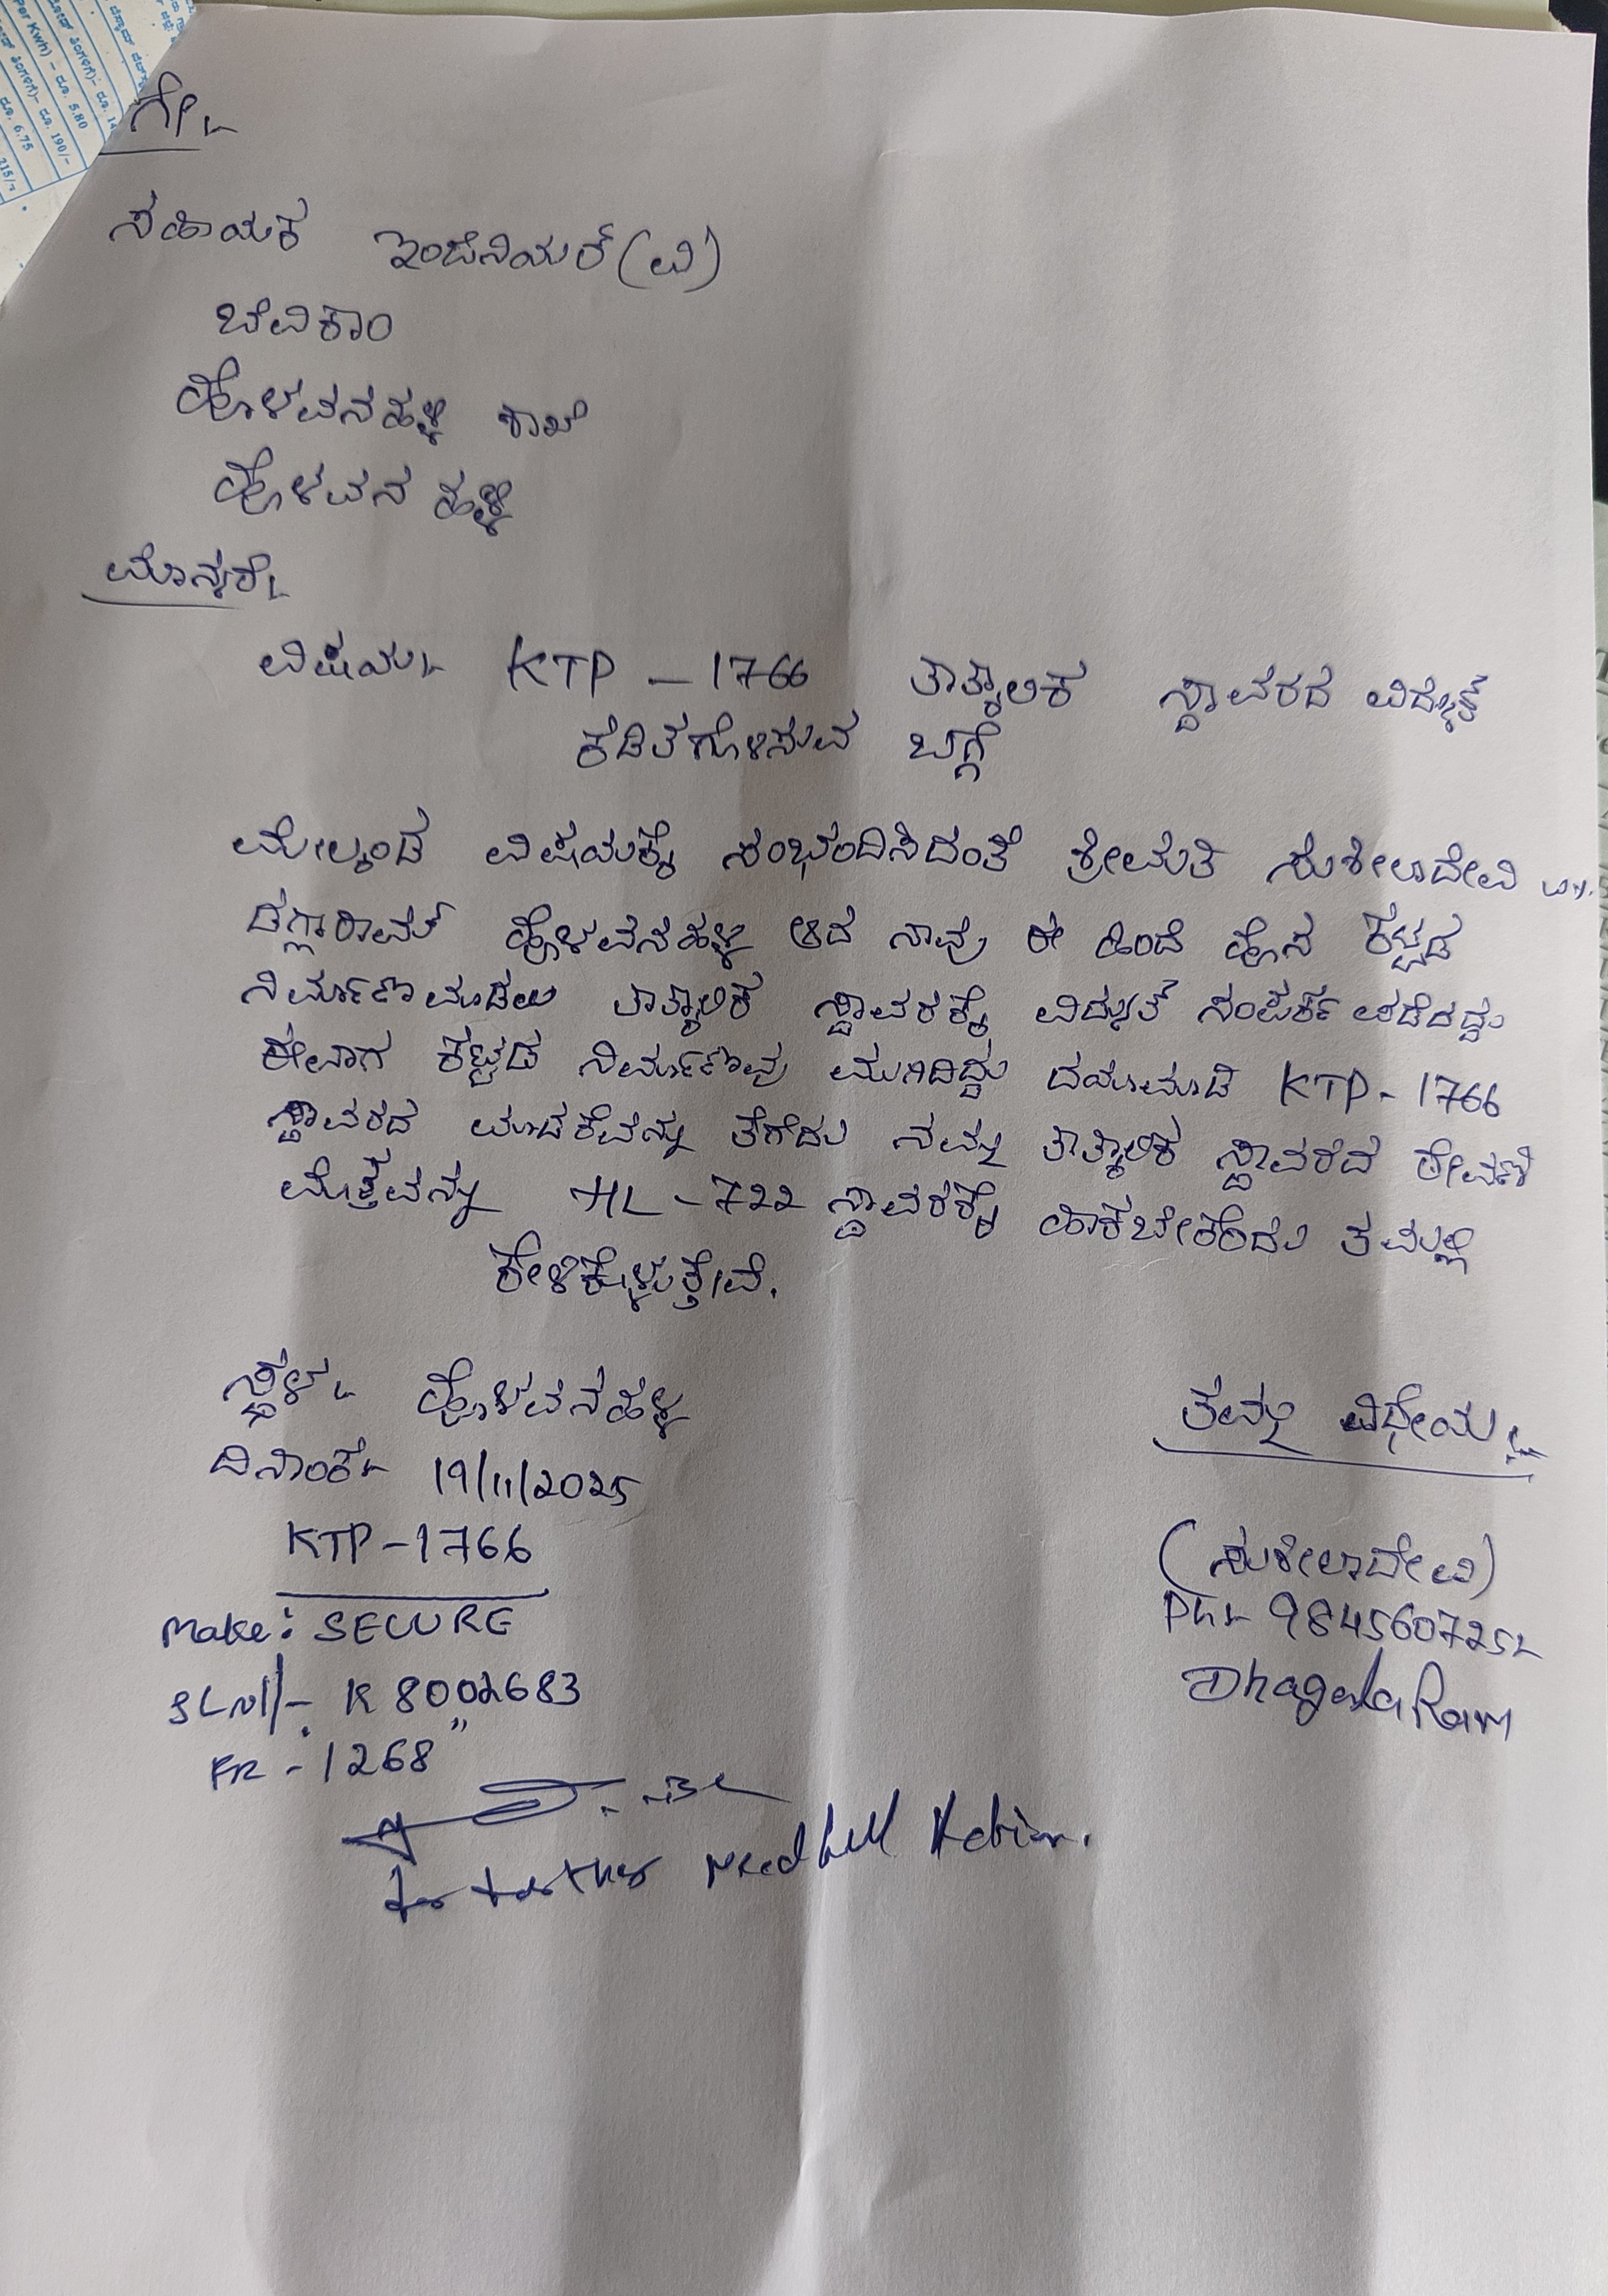 ಗೇ,
ಸಹಾಯಕ ಇಂಜಿನಿಯರ್ (ವಿ)
ಬೆವಿಕಾಂ
ಹೊಳವನಹಳ್ಳಿ ಶಾಖೆ
ಹೊಳವನ ಹಳ್ಳಿ
ಮಾನ್ಯರೇ,
ವಿಷಯ:- KTP - 1766 ತಾತ್ಕಾಲಿಕ ಸ್ಥಾವರದ ವಿದ್ಯುತ್
ಕಡಿತಗೊಳಿಸುವ ಬಗ್ಗೆ
ಮೇಲ್ಕಂಡ ವಿಷಯಕ್ಕೆ ಸಂಭಂದಿಸಿದಂತೆ ಶ್ರೀಮತಿ ಸುಶೀಲಾದೇವಿ
ಡಗ್ಲಾರಾಮ್ ಹೊಳವನಹಳ್ಳಿ ಆದ ನಾವು ಈ ಹಿಂದೆ ಹೊಸ ಕಟ್ಟಡ
ನಿರ್ಮಾಣಮಾಡಲು ತಾತ್ಕಾಲಿಕ ಸ್ಥಾವರಕ್ಕೆ ವಿದ್ಯುತ್ ಸಂಪರ್ಕ ಪಡೆದಿದ್ದು
ಈವಾಗ ಕಟ್ಟಡ ನಿರ್ಮಾಣವು ಮುಗಿದಿದ್ದು ದಯಮಾಡಿ KTP - 1766
ಸ್ಥಾವರದ ಮಾಪಕವನ್ನು ತೆಗೆದು ನಮ್ಮ ತಾತ್ಕಾಲಿಕ ಸ್ಥಾವರದ ಠೇವಣಿ
ಮೊತ್ತವನ್ನು HL - 722 ಸ್ಥಾವರಕ್ಕೆ ಹಾಕಬೇಕೆಂದು ತಮ್ಮಲ್ಲಿ
ಕೇಳಿಕೊಳ್ಳುತ್ತೇವೆ.
ಸ್ಥಳ:- ಹೊಳವನಹಳ್ಳಿ
ತಮ್ಮ ವಿಧೇಯ
ದಿನಾಂಕ:- 19/11/2025
KTP - 1766
(ಸುಶೀಲಾದೇವಿ)
Make: SECURE
Ph:- 9845607252
SL No:- K 8002683
DhagalaRam
FR - 1268"
for further needfull Action.